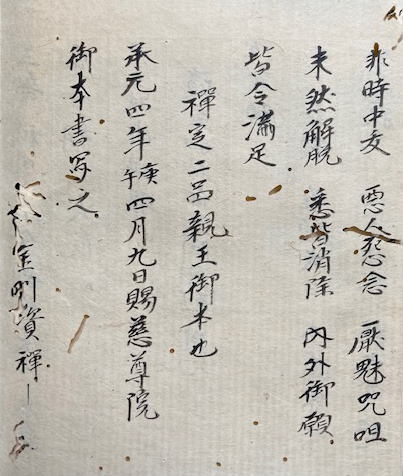 非時中夭 悪人怨念 厭魅咒咀
未然解脱 悉皆消除 内外御願
皆令満足
禅定二品親王御本也
承元四年庚午四月九日賜慈尊院
御本書写之
金剛資禅